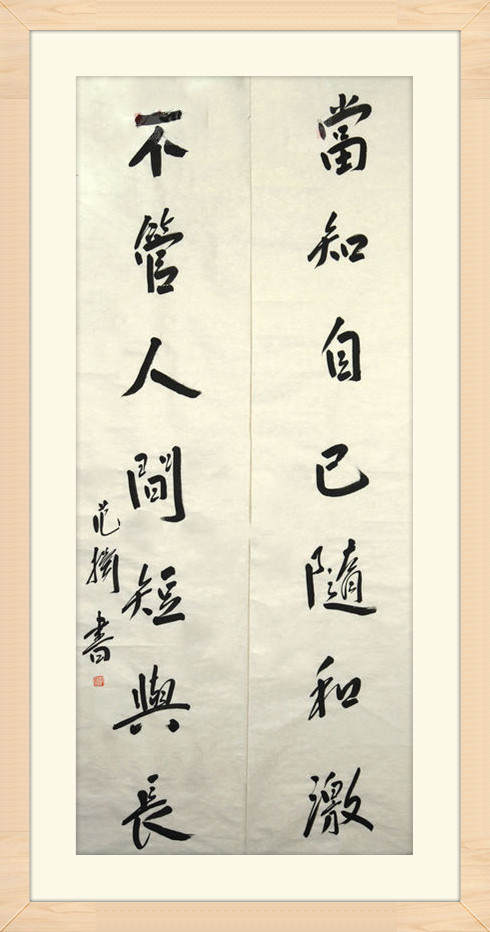 當知自己隨和激
不管人間短與長
范 書